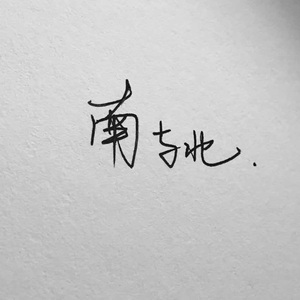 南与北.